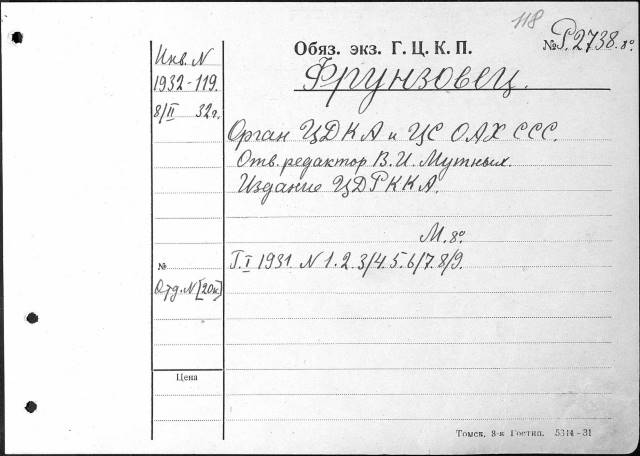 118
Обяз. экз. Г. Ц. К. П.
№ Р.2738.8º
Инв. N
1932-119.
8/II 32г.
Фрунзовец.
Орган ЦДКА и ЦС ОАХ ССС.
Отв. редактор В. И. Мутных.
Издание ЦДРККА.
М. 8º
Г. I 1931. N 1. 2. 3/4. 5. 6/7. 8/9.
№
Отд. N [20к]
Цена
Томск, 8-я Гостип. 5314-31